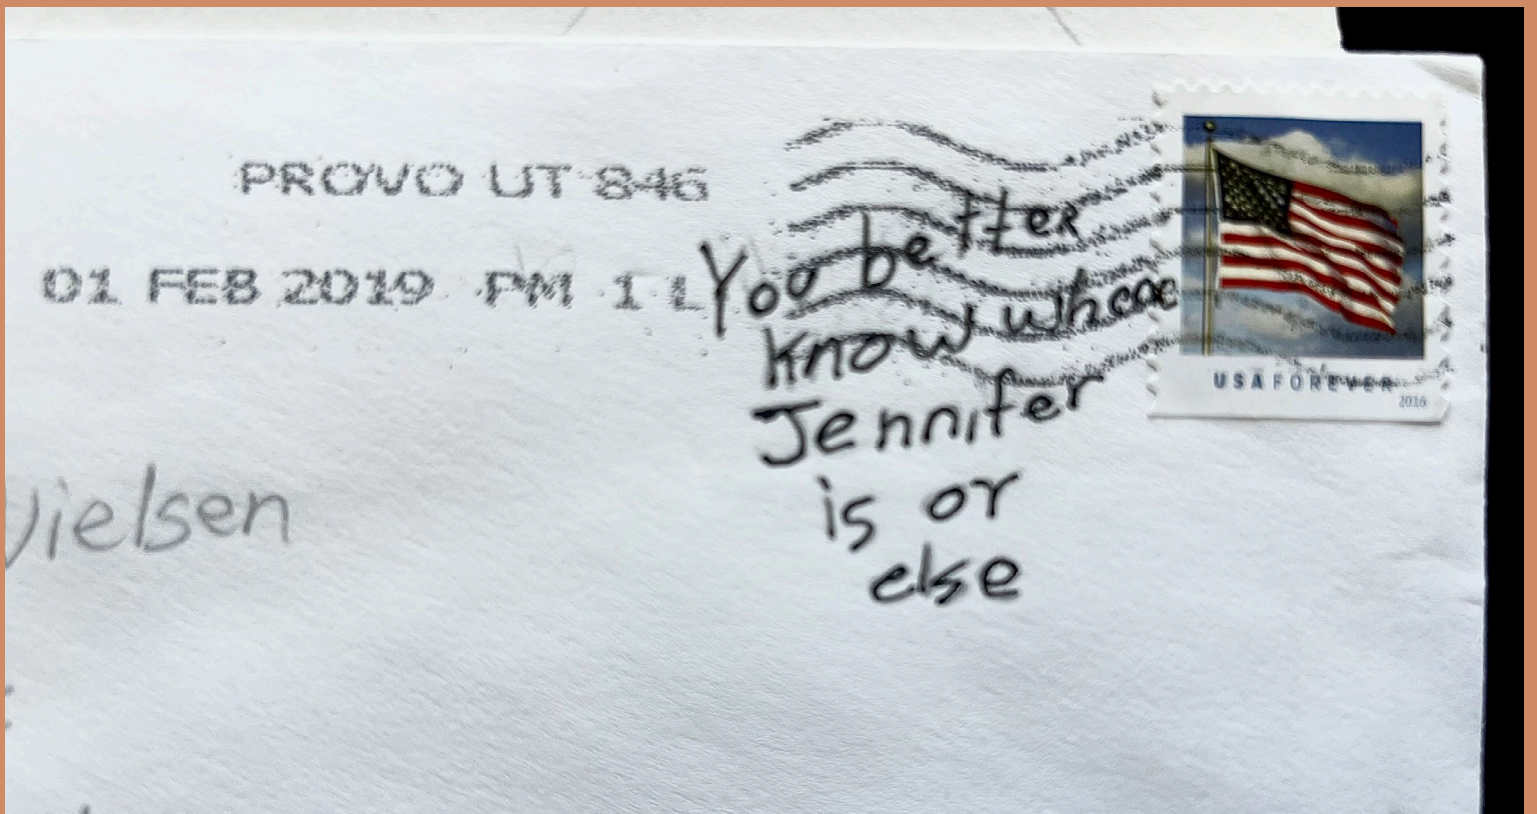 PROVO UT 846
01 FEB 2019 PM 1 L
You better
know where
Jennifer
is or
else
USA FOREVER
2016
Nielsen